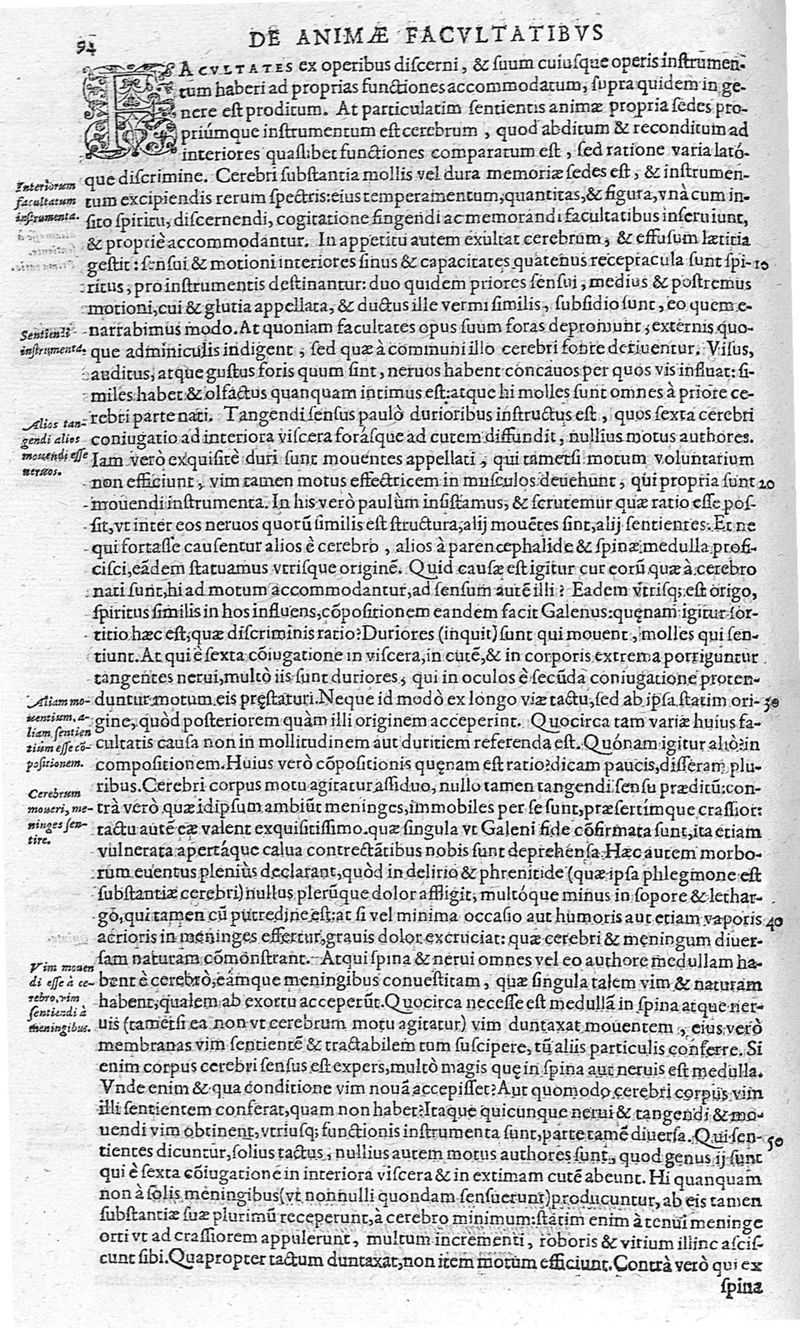 94
DE ANIMÆ FACVLTATIBVS
FACVLTATES ex operibus discerni, & suum cuiusque operis instrumen-
tum haberi ad proprias functiones accommodatum, supra quidem in ge-
nere est proditum. At particulatim sentientis animæ propria sedes pro-
priúmque instrumentum est cerebrum, quod abditum & reconditum ad
interiores quaslibet functiones comparatum est, sed ratione varia lató-
que discrimine. Cerebri substantia mollis vel dura memoriæ sedes est, & instrumen-
tum excipiendis rerum spectris: eius temperamentum, quantitas, & figura, vnà cum in-
sito spiritu, discernendi, cogitatione fingendi ac memorandi facultatibus inseruiunt,
& propriè accommodantur. In appetitu autem exultat cerebrum, & effusum lætitia
gestit: sensui & motioni interiores sinus & capacitates quatenus receptacula sunt spi- 10
ritus, pro instrumentis destinantur: duo quidem priores sensui, medius & postremus
motioni, cui & glutia appellata, & ductus ille vermi similis, subsidio sunt, eo quem e-
narrabimus modo. At quoniam facultates opus suum foras depromunt, externis quo-
que adminiculis indigent, sed quæ à communi illo cerebri fonte deriuentur. Visus,
auditus, atque gustus foris quum sint, neruos habent concauos per quos vis influat: si-
miles habet & olfactus quanquam intimus est: atque hi molles sunt omnes à priore ce-
rebri parte nati. Tangendi sensus paulò durioribus instructus est, quos sexta cerebri
coniugatio ad interiora viscera forásque ad cutem diffundit, nullius motus authores.
Iam verò exquisitè duri sunt mouentes appellati, qui tametsi motum voluntarium
non efficiunt, vim tamen motus effectricem in musculos deuehunt, qui propria sunt 20
mouendi instrumenta. In his verò paulùm insistamus, & scrutemur quæ ratio esse pos-
sit, vt inter eos neruos quorũ similis est structura, alij mouẽtes sint, alij sentientes. Et ne
qui fortasse causentur alios è cerebro, alios à parencephalide & spinæ medulla profi-
cisci, eãdem statuamus vtrisque originẽ. Quid causæ est igitur cur eorũ quæ à cerebro
nati sunt, hi ad motum accommodantur, ad sensum autẽ illi? Eadem vtrisq; est origo,
spiritus similis in hos influens, cõpositionem eandem facit Galenus: quęnam igitur sor-
titio hæc est, quæ discriminis ratio? Duriores (inquit) sunt qui mouent, molles qui sen-
tiunt. At qui è sexta cõiugatione in viscera, in cutẽ, & in corporis extrema porriguntur
tangentes nerui, multò iis sunt duriores, qui in oculos è secũda coniugatione proten-
duntur motum eis pręstaturi. Neque id modò ex longo viæ tactu, sed ab ipsa statim ori- 30
gine, quòd posteriorem quàm illi originem acceperint. Quocirca tam variæ huius fa-
cultatis causa non in mollitudinem aut duritiem referenda est. Quónam igitur aliò? in
compositionem. Huius verò cõpositionis quęnam est ratio? dicam paucis, disseram plu-
ribus. Cerebri corpus motu agitatur assiduo, nullo tamen tangendi sensu præditũ: con-
trà verò quæ idipsum ambiũt meninges, immobiles per se sunt, præsertímque crassior:
tactu autẽ eæ valent exquisitissimo. quæ singula vt Galeni fide cõfirmata sunt, ita etiam
vulnerata apertáque calua contrectãtibus nobis sunt deprehensa. Hæc autem morbo-
rum euentus pleniùs declarant, quòd in delirio & phrenitide (quæ ipsa phlegmone est
substantiæ cerebri) nullus plerũque dolor affligit, multóque minus in sopore & lethar-
go, qui tamen cũ putredine est: at si vel minima occasio aut humoris aut etiam vaporis 40
acrioris in meninges effertur, grauis dolor excruciat: quæ cerebri & meningum diuer-
sam naturam cõmonstrant. Atqui spina & nerui omnes vel eo authore medullam ha-
bent è cerebrò, eámque meningibus conuestitam, quæ singula talem vim & naturam
habent, qualem ab exortu acceperũt. Quocirca necesse est medullã in spina atque ner-
uis (tametsi ea non vt cerebrum motu agitatur) vim duntaxat mouentem, eius verò
membranas vim sentientẽ & tractabilem tum suscipere, tũ aliis particulis conferre. Si
enim corpus cerebri sensus est expers, multò magis quę in spina aut neruis est medulla.
Vnde enim & qua conditione vim nouã accepisset? Aut quomodo cerebri corpus vim
illi sentientem conferat, quam non habet? Itaque quicunque nerui & tangendi & mo-
uendi vim obtinent, vtriusq; functionis instrumenta sunt, parte tamẽ diuersa. Qui sen- 50
tientes dicuntur, solius tactus, nullius autem motus authores sunt, quod genus ij sunt
qui è sexta cõiugatione in interiora viscera & in extimam cutẽ abeunt. Hi quanquam
non à solis meningibus (vt nonnulli quondam senserunt) producuntur, ab eis tamen
substantiæ suæ plurimũ receperunt, à cerebro minimum: statim enim à tenui meninge
orti vt ad crassiorem appulerunt, multum incrementi, roboris & virium illinc ascis-
cunt sibi. Quapropter tactum duntaxat, non item motum efficiunt. Contrà verò qui ex
spina
Interiorum
facultatum
instrumenta.
Sentiendi
instrumenta.
Alios tan-
gendi alios
mouendi esse
neruos.
Aliam mo-
uentium, a-
liam sentien
tium esse cõ-
positionem.
Cerebrum
moueri, me-
ninges sen-
tire.
Vim mouen
di esse à ce-
rebro, vim
sentiendi à
meningibus.